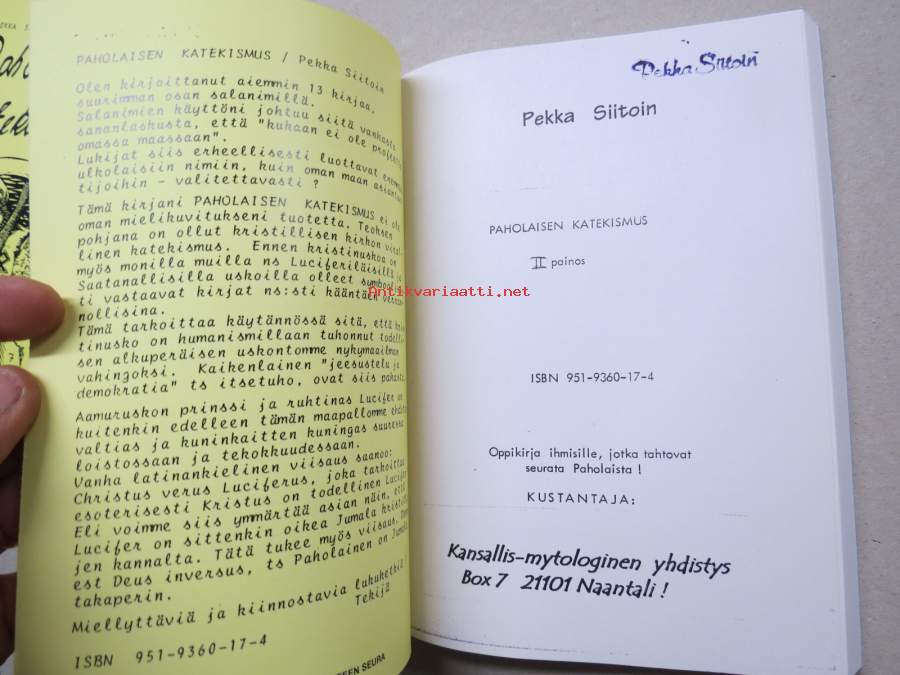 PAHOLAISEN KATEKISMUS / Pekka Siitoin
Olen kirjoittanut aiemmin 13 kirjaa,
suurimman osan salanimillä.
Salanimien käyttöni johtuu siitä vanhasta
sananlaskusta, että "kukaan ei ole
omassa maassaan".
Lukijat siis erheellisesti luottavat
ulkolaisiin nimiin, kuin oman maan
tijoihin - valitettavasti ?
Tämä kirjani PAHOLAISEN KATEKISMUS ei ole
oman mielikuvitukseni tuotetta. Teoksen
pohjana on ollut kristillisen kirkon
linen katekismus. Ennen kristinuskoa on
myös monilla muilla ns Luciferiläisillä
Saatanallisilla uskoilla olleet
ti vastaavat kirjat ns:sti kääntäen
nollisina.
Tämä tarkoittaa käytännössä sitä, että
tinusko on humanismillaan tuhonnut
sen alkuperäisen uskontomme nykymaailman
vahingoksi. Kaikenlainen "jeesustelu ja
demokratia" ts itsetuho, ovat siis
Aamuruskon prinssi ja ruhtinas Lucifer on
kuitenkin edelleen tämän maapallomme
valtias ja kuninkaitten kuningas
loistossaan ja tekokkuudessaan.
Vanha latinankielinen viisaus sanoo:
Christus verus Luciferus, joka tarkoittaa
esoterisesti Kristus on todellinen
Eli voimme siis ymmärtää asian näin, että
Lucifer on sittenkin oikea Jumala
jen kannalta. Tätä tukee myös viisaus,
est Deus inversus, ts Paholainen on
takaperin.
Miellyttäviä ja kiinnostavia lukuhetkiä !
Tekijä
ISBN 951-9360-17-4
SEURA
Pekka Siitoin
Pekka Siitoin
PAHOLAISEN KATEKISMUS
II painos
Antikvariaatti.net
ISBN 951-9360-17-4
Oppikirja ihmisille, jotka tahtovat
seurata Paholaista !
KUSTANTAJA:
Kansallis-mytologinen yhdistys
Box 7 21101 Naantali !